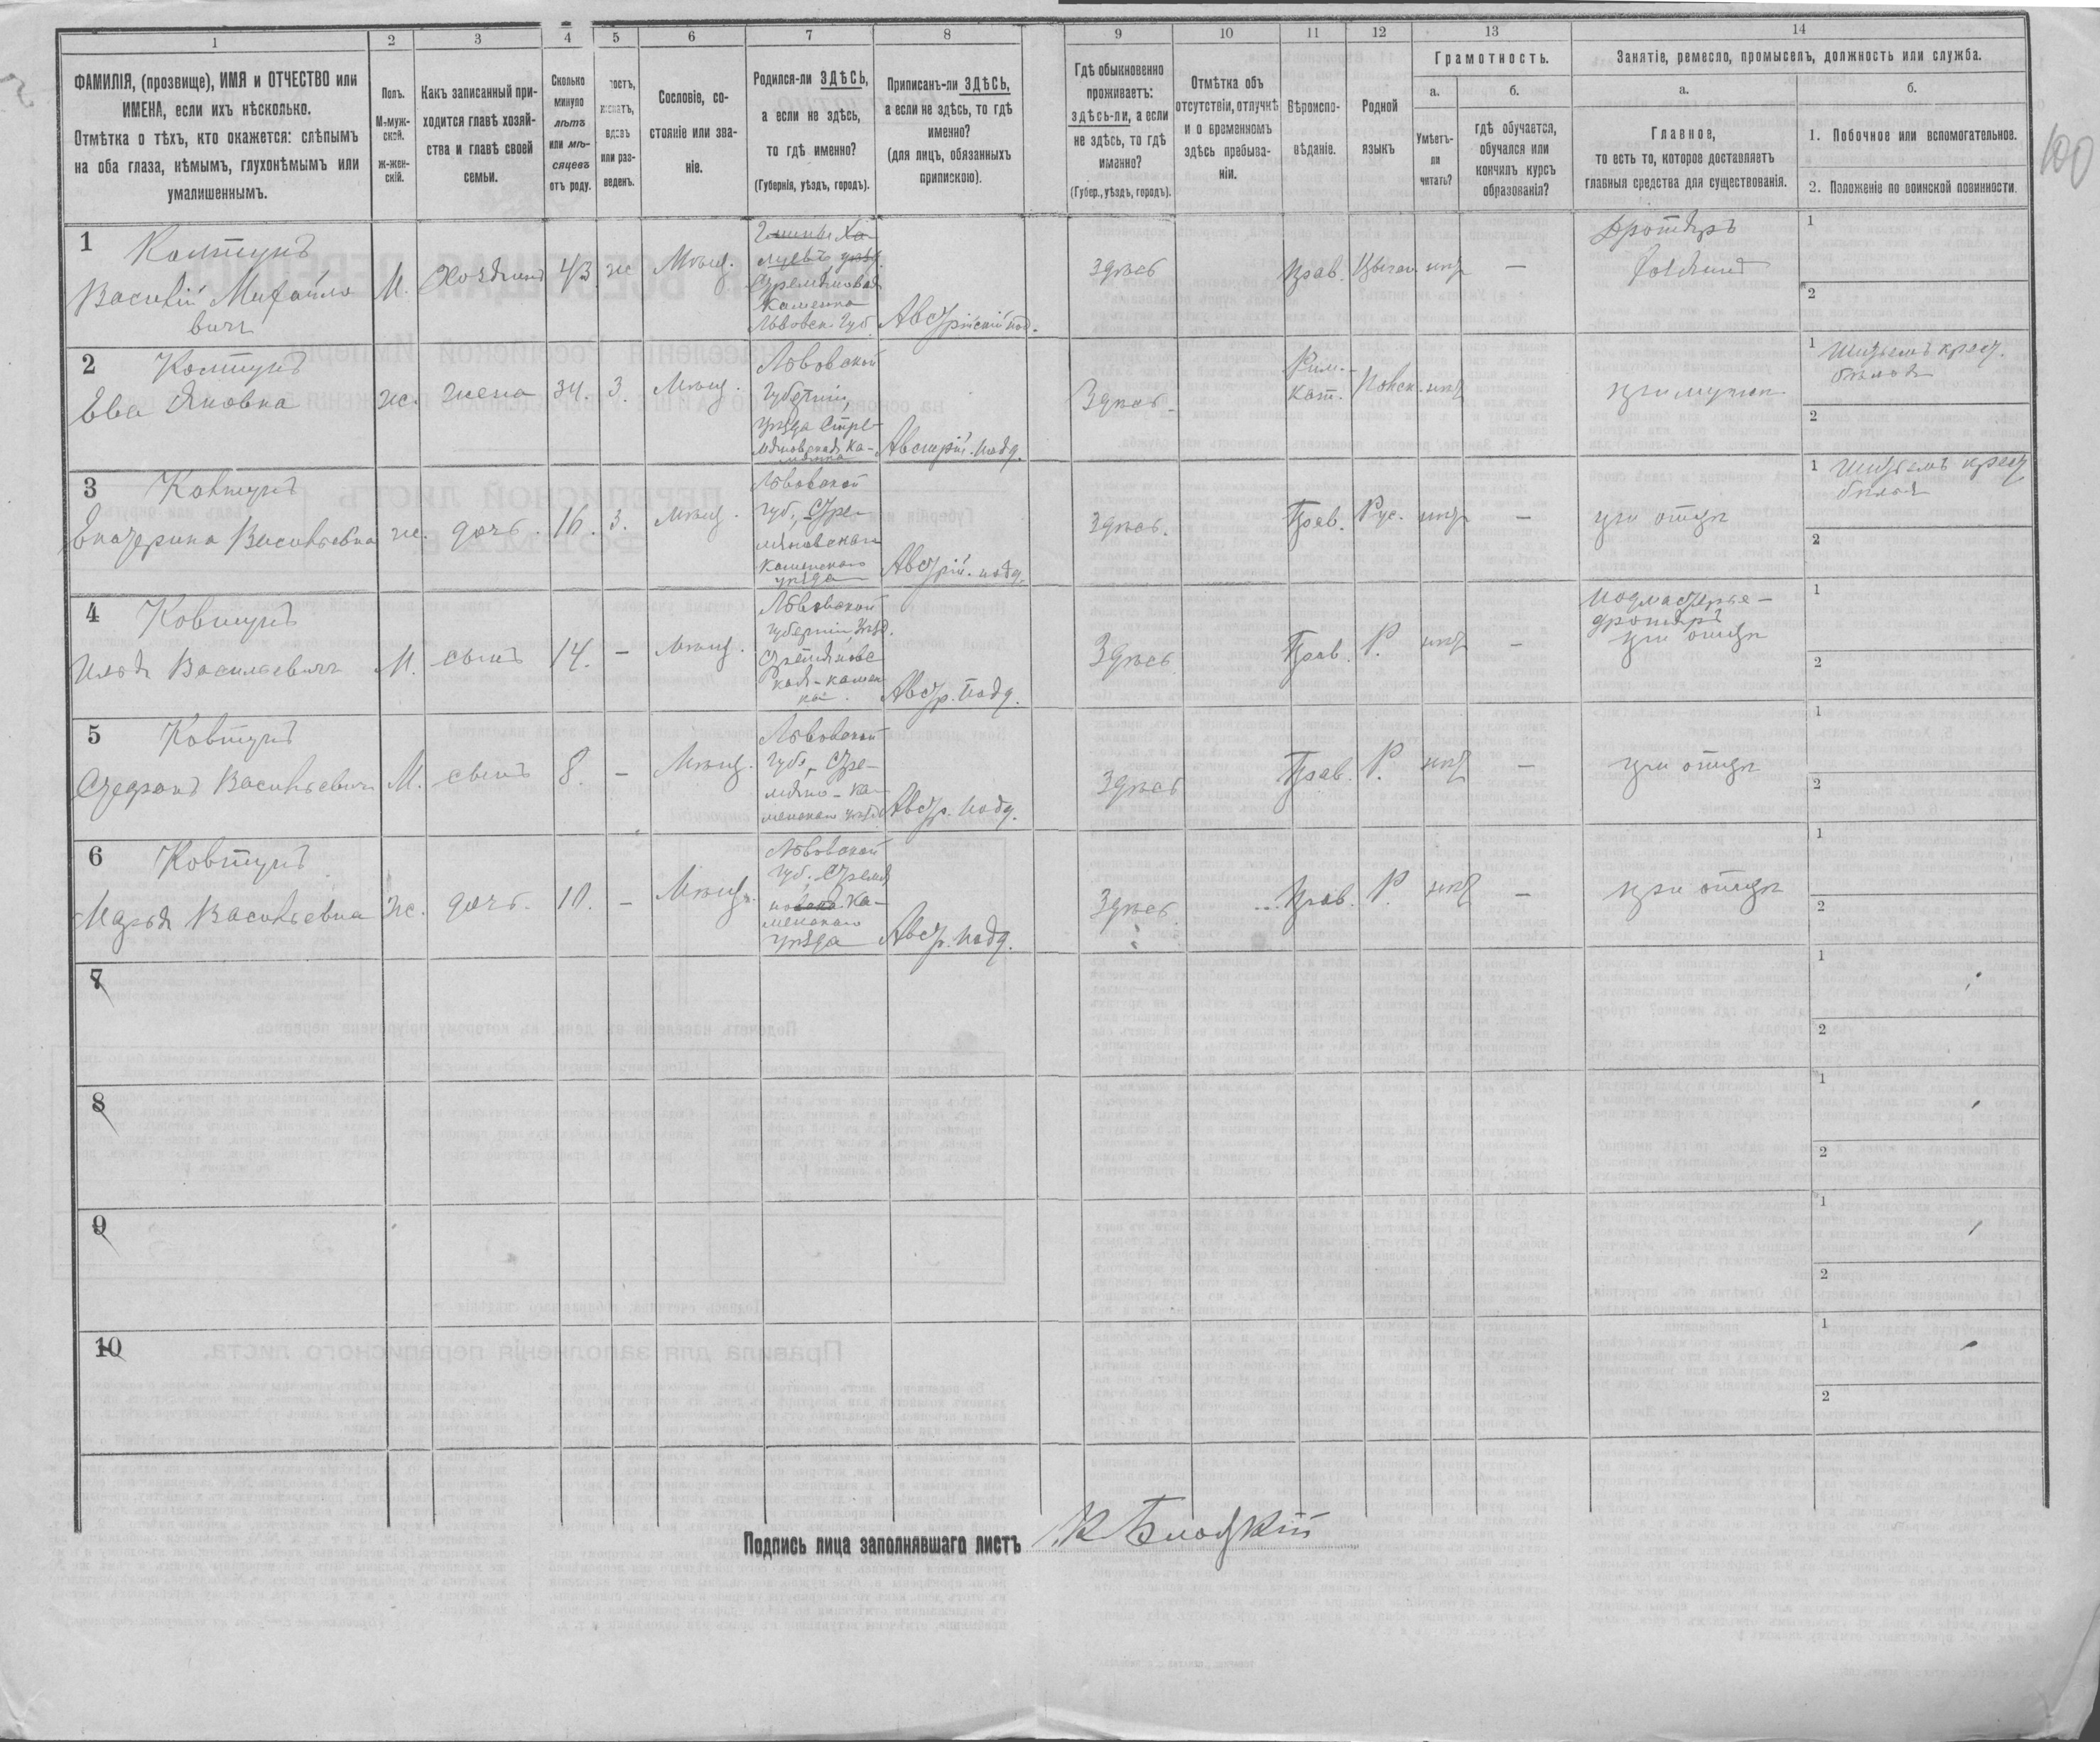 1 2 3 4 5 6 7 8 9 10 11 12 13 14
ФАМИЛІЯ, (прозвище), ИМЯ и ОТЧЕСТВО или
ИМЕНА, если ихъ нѣсколько.
Отмѣтка о тѣхъ, кто окажется: слѣпымъ
на оба глаза, нѣмымъ, глухонѣмымъ или
умалишеннымъ.
Полъ.
М-муж-
ской.
Ж-жен-
скій.
Какъ записанный при-
ходится главѣ хозяй-
ства и главѣ своей
семьи.
Сколько
минуло
лѣтъ
или мѣ-
сяцевъ
отъ роду.
вдовъ
или раз-
веденъ.
Сословіе, со-
стояніе или зва-
ніе.
Родился-ли ЗДѢСЬ,
а если не здѣсь,
то гдѣ именно?
(Губернія, уѣздъ, городъ).
Приписанъ-ли ЗДѢСЬ,
а если не здѣсь, то гдѣ
именно?
(для лицъ, обязанныхъ
припискою).
Гдѣ обыкновенно
проживаетъ:
здѣсь-ли, а если
не здѣсь, то гдѣ
именно?
(Губер., уѣздъ, городъ).
Отмѣтка объ
отсутствіи, отлучкѣ
и о временномъ
здѣсь пребыва-
ніи.
Вѣроиспо-
вѣданіе.
Родной
языкъ
Грамотность.
а.
Умѣетъ-
ли
читать?
б.
гдѣ обучается,
обучался или
кончилъ курсъ
образованія?
Занятіе, ремесло, промыселъ, должность или служба.
а.
Главное,
то есть то, которое доставляетъ
главныя средства для существованія.
б.
1. Побочное или вспомогательное.
2. Положеніе по воинской повинности.
100
1 Колтунъ
Василій Михайло
вичъ
М. Хозяинъ 43 ж Мѣщ.
Стремяновая
Каменка
Львовск. Губ.
Австрійскій под.
Здѣсь Прав. Цыган. нѣт —
Дротяръ
хозяинъ
1
2
2 Колтунъ
Ева Яновна
ж. жена 34. З. Мѣщ.
Львовской
Губерніи,
уѣзда Стре-
мяновская Ка-
менка
Австрій. подд.
Здѣсь. Рим.-
Кат. Польск. нѣт
при мужѣ
1 Шитьемъ крест.
бѣлья
2
3 Ковтунъ
Екатерина Васильевна
ж. дочь. 16. З. Мѣщ.
Львовской
губ., Стре-
мяновскаго
Каменскаго
уѣзда
Австрій. подд.
Здѣсь. Прав. Рус. нѣт —
при отцѣ
1 Шитьемъ крест
бѣлья
2
4 Ковтунъ
Илья Васильевичъ
М. сынъ 14. — Мѣщ.
Львовской
губерніи, уѣзд.
Стремяновс
кая-камен
кай.
Австр. подд.
Здѣсь Прав. Р. нѣт —
подмастерье-
дротяръ
при отцѣ
1
2
5 Ковтунъ
Стефанъ Васильевичъ
М. сынъ 8. — Мѣщ.
Львовской
Губ., Стре-
мяно-Ка-
менскаго уѣзда
Австр. подд.
Здѣсь Прав. Р. нѣт —
при отцѣ
1
2
6 Ковтунъ
Марья Васильевна
ж. дочь. 10. — Мѣщ.
Львовской
Губ. Стремя
Ка-
менскаго
уѣзда
Австр. подд.
Здѣсь Прав. Р. нѣт —
при отцѣ
1
2
7
1
2
8
1
2
9
1
2
10
1
2
Подпись лица заполнявшаго листъ